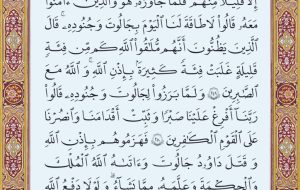 إِلَّا قَلِيلًا مِّنْهُمْ فَلَمَّا جَاوَزَهُۥ هُوَ وَٱلَّذِينَ ءَامَنُوا۟
مَعَهُۥ قَالُوا۟ لَا طَاقَةَ لَنَا ٱلْيَوْمَ بِجَالُوتَ وَجُنُودِهِۦ ۚ قَالَ
ٱلَّذِينَ يَظُنُّونَ أَنَّهُم مُّلَٰقُوا۟ ٱللَّهِ كَم مِّن فِئَةٍ
قَلِيلَةٍ غَلَبَتْ فِئَةً كَثِيرَةًۢ بِإِذْنِ ٱللَّهِ ۗ وَٱللَّهُ مَعَ
ٱلصَّٰبِرِينَ ۝٢٤٩ وَلَمَّا بَرَزُوا۟ لِجَالُوتَ وَجُنُودِهِۦ قَالُوا۟
رَبَّنَآ أَفْرِغْ عَلَيْنَا صَبْرًا وَثَبِّتْ أَقْدَامَنَا وَٱنصُرْنَا
عَلَى ٱلْقَوْمِ ٱلْكَٰفِرِينَ ۝٢٥٠ فَهَزَمُوهُم بِإِذْنِ ٱللَّهِ
وَقَتَلَ دَاوُۥدُ جَالُوتَ وَءَاتَىٰهُ ٱللَّهُ ٱلْمُلْكَ
وَٱلْحِكْمَةَ وَعَلَّمَهُۥ مِمَّا يَشَآءُ ۗ وَلَوْلَا دَفْعُ ٱللَّهِ